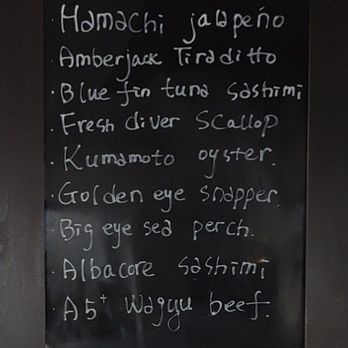 · Hamachi jalapeño
· Amberjack Tiraditto
· Blue fin tuna sashimi
· Fresh diver scallop
· Kumamoto oyster.
· Golden eye snapper.
· Big eye sea perch.
· Albacore sashimi
· A5⁺ Wagyu beef.